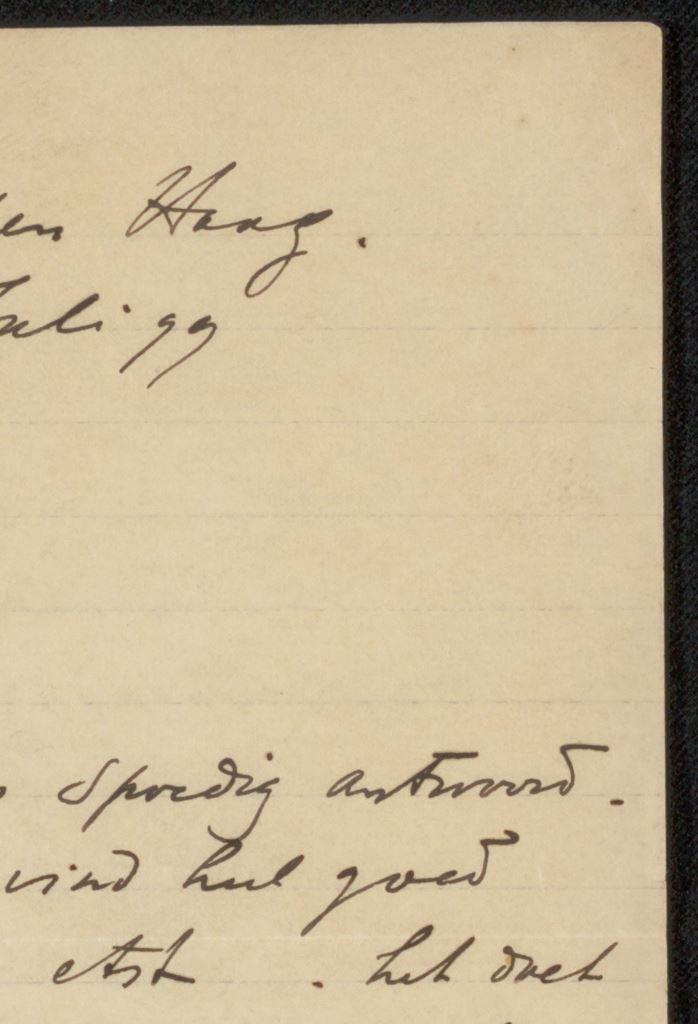 en Haag.
uli 99
spoedig antwoord.
vind heel goed
etst . het doet